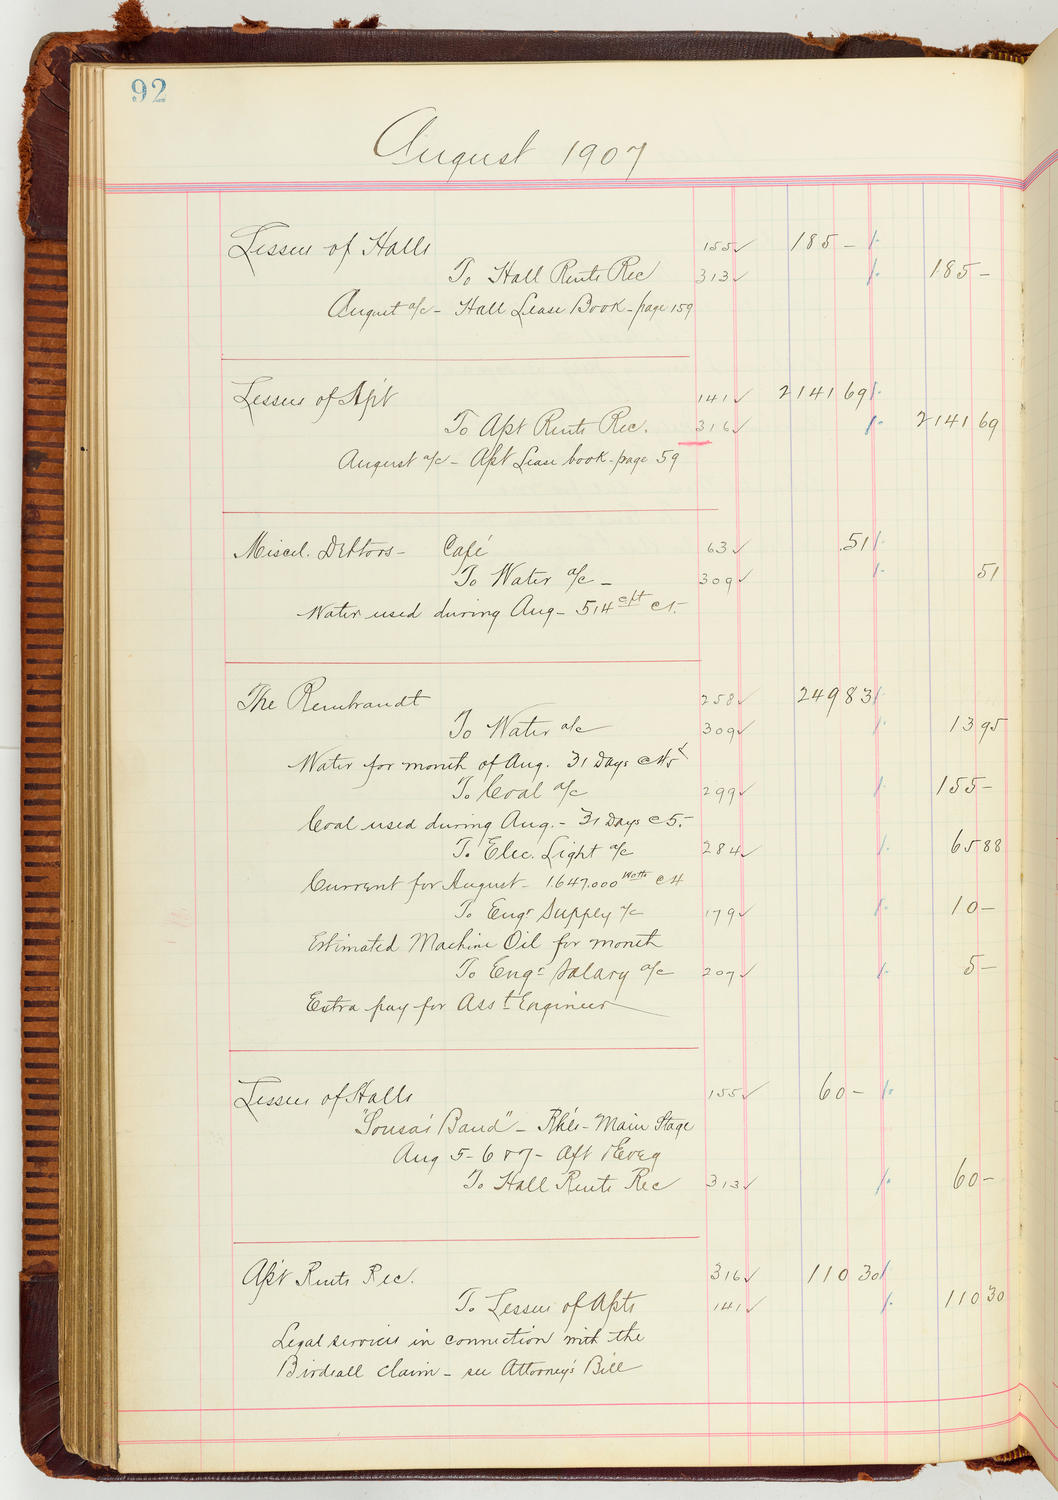 92
August 1907
Lessees of Halls 155 ✓ 185 –
To Hall Rents Rec 313 ✓ 185 –
August a/c – Hall Lease Book – page 159
Lessees of Apt 141 ✓ 2141 69
To Apt Rents Rec. 316 ✓ 2141 69
August a/c – Apt Lease book – page 59
Miscel. Debtors – Café 63 ✓ .51
To Water a/c – 309 ✓ 51
Water used during Aug – 514 c/ft @ 1.–
The Rembrandt 258 ✓ 249 83
To Water a/c 309 ✓ 13 95
Water for month of Aug. 31 Days @ 45¢
To Coal a/c 299 ✓ 155 –
Coal used during Aug. – 31 Days @ 5.–
To Elec. Light a/c 284 ✓ 65 88
Current for August – 1.647.000 Watts @ 4
To Engr Supply a/c 179 ✓ 10 –
Estimated Machine Oil for month
To Engr Salary a/c 207 ✓ 5 –
Extra pay for Asst Engineer
Lessees of Halls 155 ✓ 60 –
"Sousa's Band" – Rh'ls – Main Stage
Aug 5 – 6 & 7 – Aft & Eve'g
To Hall Rents Rec 313 ✓ 60 –
Apt Rents Rec. 316 ✓ 110 30
To Lessees of Apts 141 ✓ 110 30
Legal services in connection with the
Birdsall claim – see Attorney's Bill